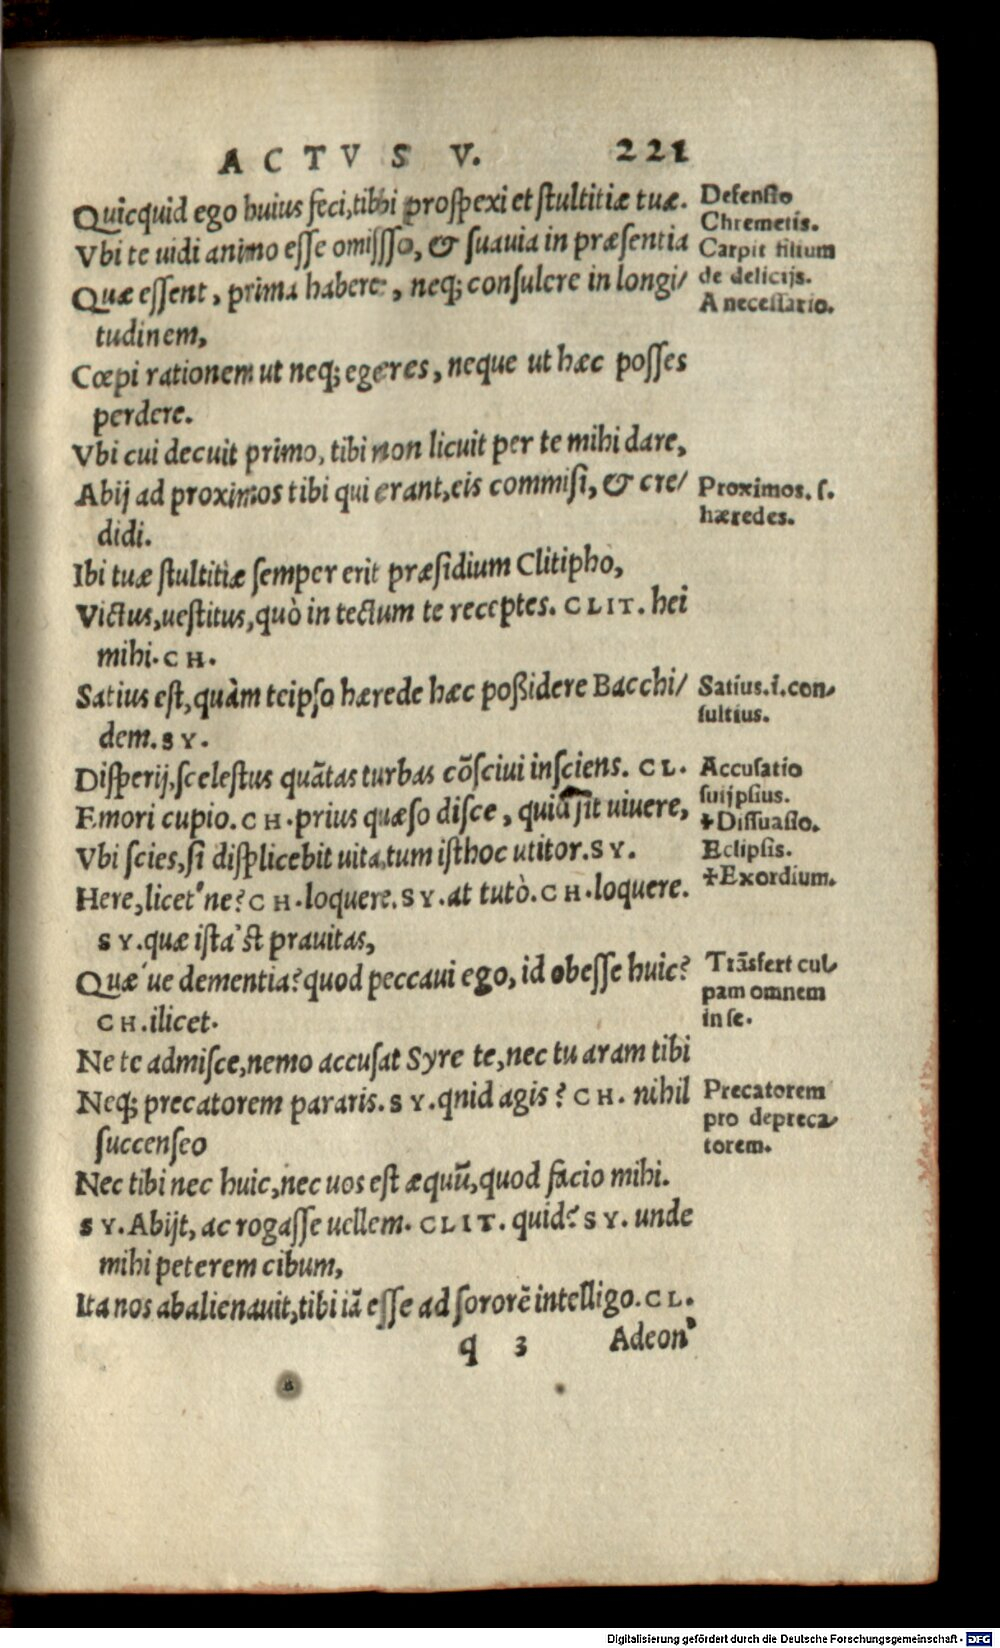 ACTVS V. 221
Quicquid ego huius feci, tibi prospexi et stultitiæ tuæ.
Defensio
Chremetis.
Vbi te uidi animo esse omisso, & suauia in præsentia
Carpit filium
de delicijs.
Quæ essent, prima habere, neq; consulere in longi/
A necessario.
tudinem,
Cœpi rationem ut neq; egeres, neque ut hæc posses
perdere.
Vbi cui decuit primo, tibi non licuit per te mihi dare,
Abij ad proximos tibi qui erant, eis commisi, & cre/
Proximos. s.
hæredes.
didi.
Ibi tuæ stultitiæ semper erit præsidium Clitipho,
Victus, uestitus, quò in tectum te receptes. CLIT. hei
mihi. CH.
Satius est, quàm teipso hærede hæc poßidere Bacchi/
Satius. i. con-
sultius.
dem. SY.
Disperij, scelestus quātas turbas cōsciui insciens. CL.
Accusatio
suijpsius.
Emori cupio. CH. prius quæso disce, quid sit uiuere,
✝Dissuasio.
Vbi scies, si displicebit uita, tum isthoc utitor. SY.
Eclipsis.
Here, licet'ne? CH. loquere. SY. at tutò. CH. loquere.
✝Exordium.
SY. quæ ista'st prauitas,
Quæ'ue dementia? quod peccaui ego, id obesse huic?
Trāsfert cul-
pam omnem
in se.
CH. ilicet.
Ne te admisce, nemo accusat Syre te, nec tu aram tibi
Neq; precatorem pararis. SY. qnid agis? CH. nihil
Precatorem
pro depreca-
torem.
succenseo
Nec tibi nec huic, nec uos est æquū, quod facio mihi.
SY. Abijt, ac rogasse uellem. CLIT. quid? SY. unde
mihi peterem cibum,
Ita nos abalienauit, tibi iā esse ad sororē intelligo. CL.
q 3 Adeon'
Digitalisierung gefördert durch die Deutsche Forschungsgemeinschaft - DFG